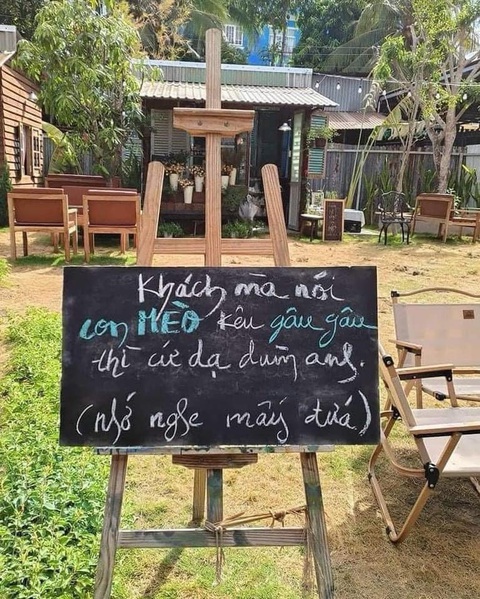 Khách mà nói
con MÈO kêu gâu gâu
thì cứ dạ dùm anh.
(nhớ nghe mấy đứa)